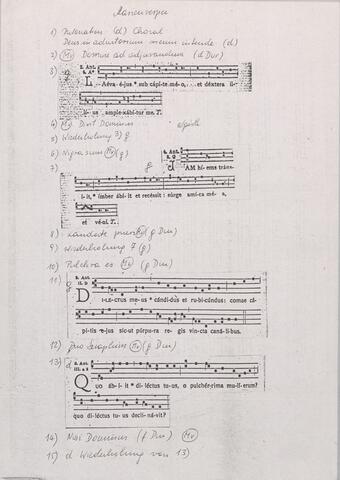 Marienvesper
1) Paternoster (d) Choral
Deus in adiutorium meum intende (d)
2) Mo Domine ad adjuvandum (d Dur)
3) g
3. Ant.
4. A*
LAEva ejus * sub cápite méo, et déxtera il-
lius amplexábitur me.
4) Mo Dixit Dominus
5) Wiederholung 3) g
6) Nigra sum Mo (g)
7) g
JAM híems tráns-
iit, * ímber ábiit et recéssit : súrge amíca méa,
et véni.
8) Laudate pueri Mo (g Dur)
9) Wiederholung 7 (g)
10) Pulchra es Mo (g Dur)
11) g
2. Ant.
DILECTUS meus * cándidus et rubicúndus: comae cá-
pitis ejus sicut púrpura regis vincta canálibus.
12) Duo Seraphim Mo (g Dur)
13) d
3. Ant.
QUO ábiit * diléctus tuus, o pulchérrima mulíerum?
quo diléctus tuus declinávit?
14) Nisi Dominus (f Dur) Mo
15) d Wiederholung von 13)